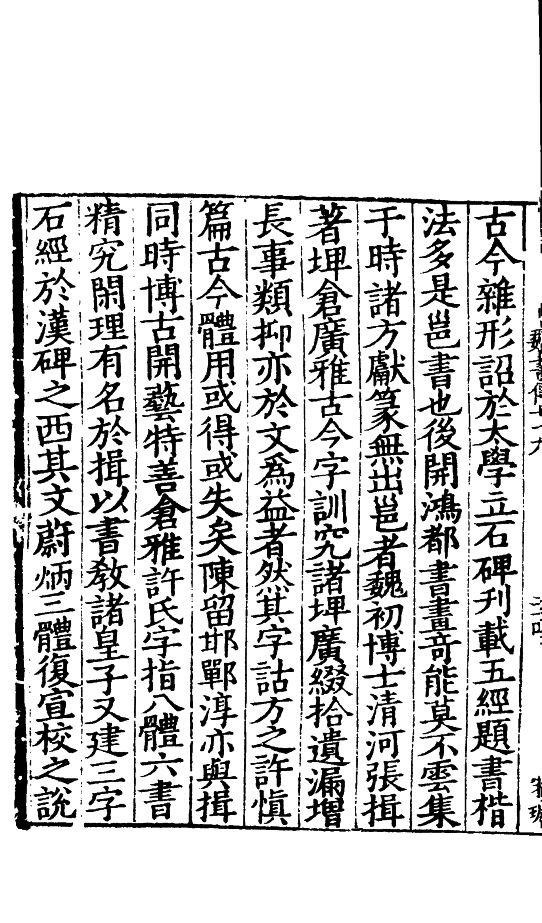 古今雜形詔於太學立石碑刊載五經題書楷
法多是邕書也後開鴻都書畫竒能莫不雲集
于時諸方獻篆無出邕者魏初博士清河張揖
著埤倉廣雅古今字訓究諸埤廣綴拾遺漏增
長事類抑亦於文為益者然其字詁方之許愼
篇古今體用或得或失矣陳留邯鄲淳亦與揖
同時博古開藝特善倉雅許氏字指八體六書
精究閑理有名於揖以書教諸皇子又建三字
石經於漢碑之西其文蔚炳三體復宣校之說